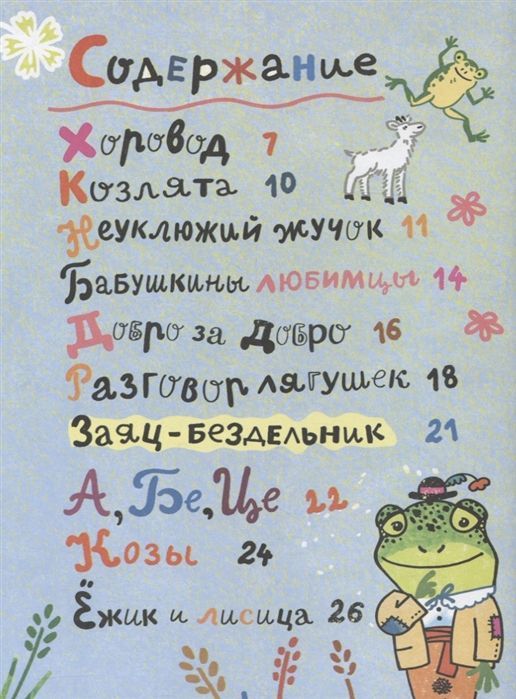 Содержание
Хоровод 7
Козлята 10
Неуклюжий жучок 11
Бабушкины любимцы 14
Добро за добро 16
Разговор лягушек 18
Заяц-бездельник 21
А, Бе, Це 22
Козы 24
Ёжик и лисица 26